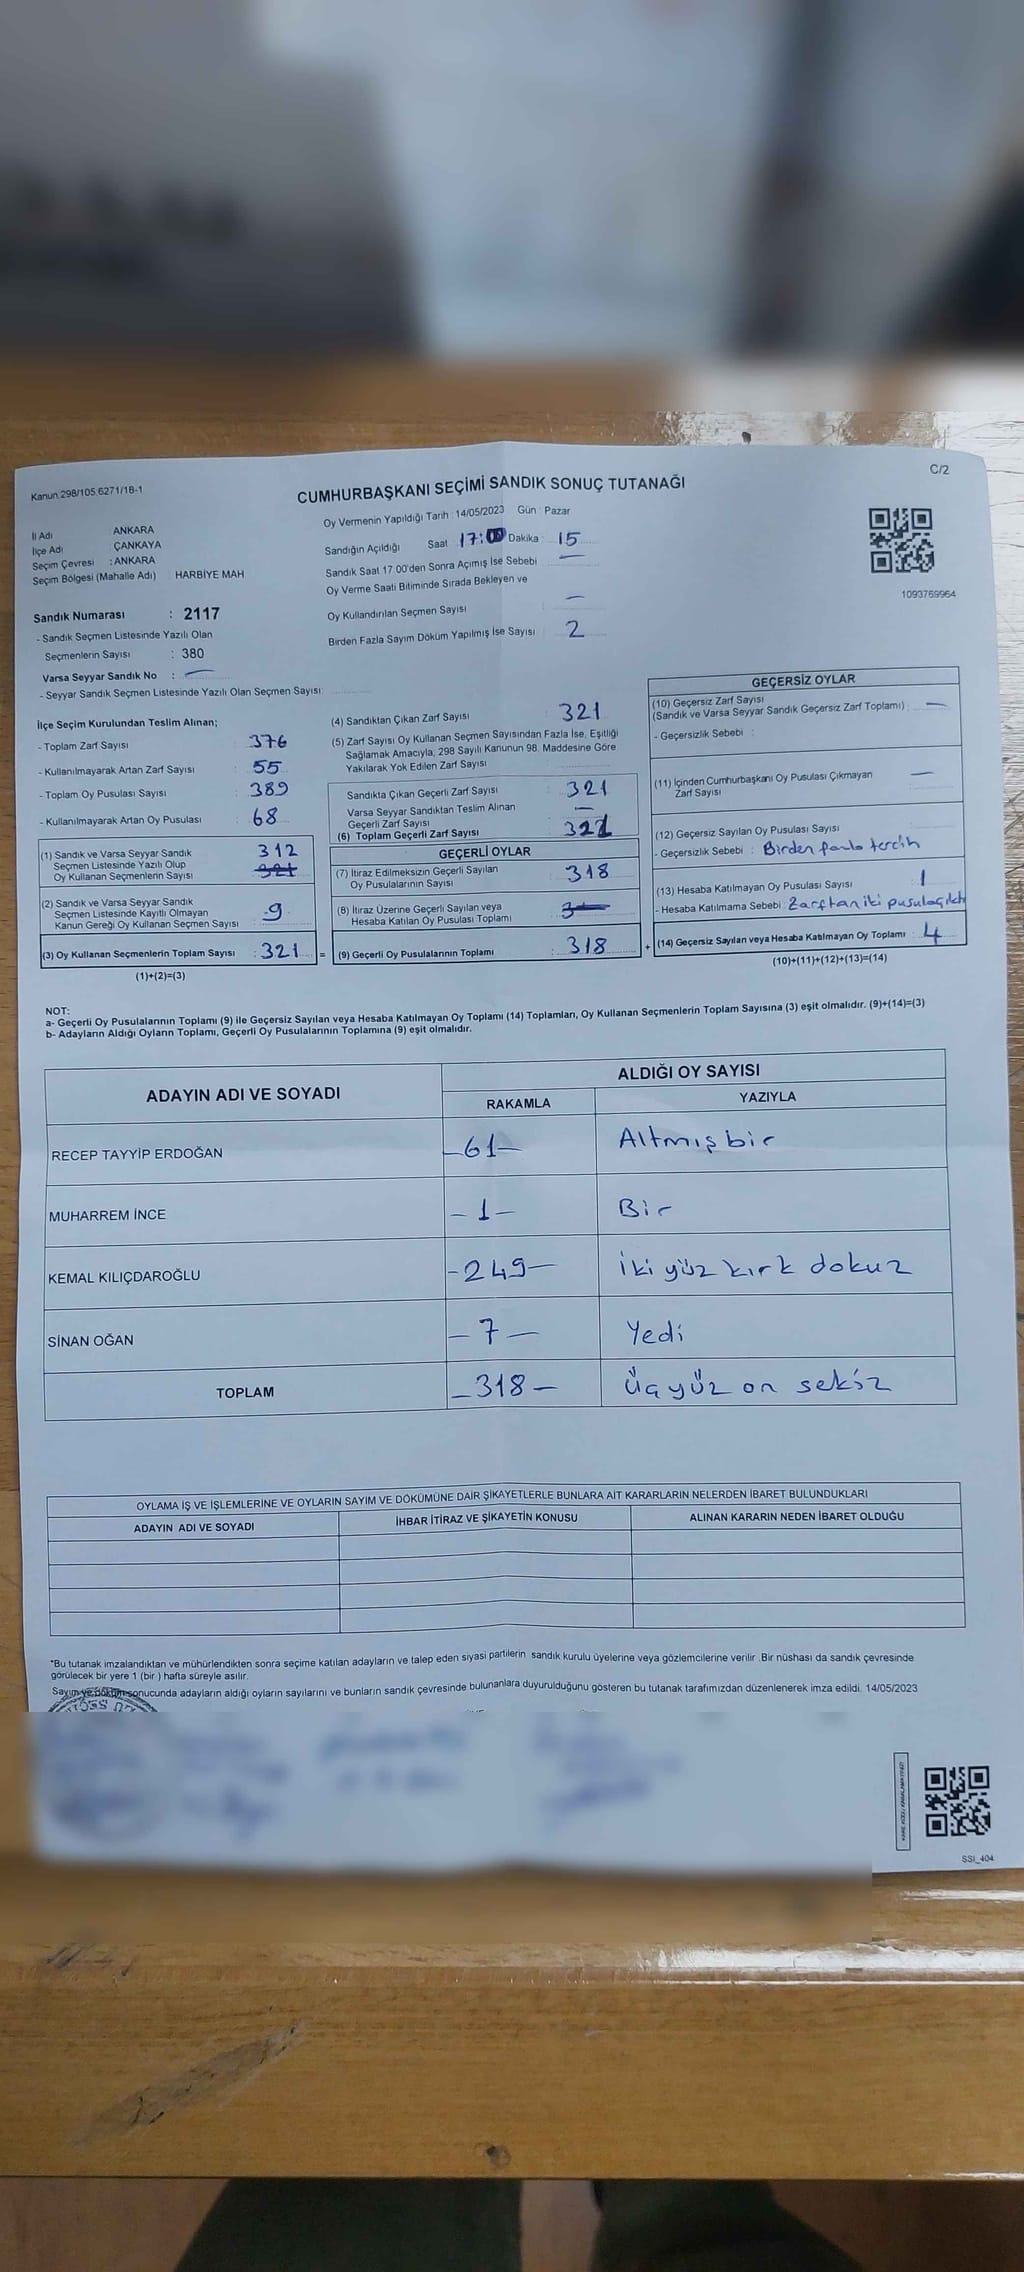 Kanun 298/105 6271/18-1
CUMHURBAŞKANI SEÇİMİ SANDIK SONUÇ TUTANAĞI
C/2
İl Adı ANKARA
İlçe Adı ÇANKAYA
Seçim Çevresi : ANKARA
Seçim Bölgesi (Mahalle Adı) HARBİYE MAH
Sandık Numarası : 2117
- Sandık Seçmen Listesinde Yazılı Olan
Seçmenlerin Sayısı : 380
Varsa Seyyar Sandık No : —
- Seyyar Sandık Seçmen Listesinde Yazılı Olan Seçmen Sayısı:
Oy Vermenin Yapıldığı Tarih : 14/05/2023 Gün : Pazar
Sandığın Açıldığı Saat 17:00 Dakika : 15
Sandık Saat 17 00'den Sonra Açımış İse Sebebi —
Oy Verme Saati Bitiminde Sırada Bekleyen ve
Oy Kullandırılan Seçmen Sayısı —
Birden Fazla Sayım Döküm Yapılmış İse Sayısı : 2
1093769964
İlçe Seçim Kurulundan Teslim Alınan;
- Toplam Zarf Sayısı : 376
- Kullanılmayarak Artan Zarf Sayısı : 55
- Toplam Oy Pusulası Sayısı : 389
- Kullanılmayarak Artan Oy Pusulası : 68
(1) Sandık ve Varsa Seyyar Sandık 312
Seçmen Listesinde Yazılı Olup
Oy Kullanan Seçmenlerin Sayısı : 321
(2) Sandık ve Varsa Seyyar Sandık
Seçmen Listesinde Kayıtlı Olmayan
Kanun Gereği Oy Kullanan Seçmen Sayısı : 9
(3) Oy Kullanan Seçmenlerin Toplam Sayısı : 321 =
(1)+(2)=(3)
(4) Sandıktan Çıkan Zarf Sayısı : 321
(5) Zarf Sayısı Oy Kullanan Seçmen Sayısından Fazla İse, Eşitliği
Sağlamak Amacıyla, 298 Sayılı Kanunun 98. Maddesine Göre
Yakılarak Yok Edilen Zarf Sayısı
Sandıkta Çıkan Geçerli Zarf Sayısı : 321
Varsa Seyyar Sandıktan Teslim Alınan
Geçerli Zarf Sayısı : —
(6) Toplam Geçerli Zarf Sayısı : 321
GEÇERLİ OYLAR
(7) İtiraz Edilmeksizin Geçerli Sayılan
Oy Pusulalarının Sayısı : 318
(8) İtiraz Üzerine Geçerli Sayılan veya
Hesaba Katılan Oy Pusulası Toplamı : 3
(9) Geçerli Oy Pusulalarının Toplamı : 318 +
GEÇERSİZ OYLAR
(10) Geçersiz Zarf Sayısı
(Sandık ve Varsa Seyyar Sandık Geçersiz Zarf Toplamı) : —
- Geçersizlik Sebebi :
(11) İçinden Cumhurbaşkanı Oy Pusulası Çıkmayan
Zarf Sayısı —
(12) Geçersiz Sayılan Oy Pusulası Sayısı :
- Geçersizlik Sebebi : Birden fazla tercih
(13) Hesaba Katılmayan Oy Pusulası Sayısı : 1
- Hesaba Katılmama Sebebi : Zarftan iki pusula çıktı
(14) Geçersiz Sayılan veya Hesaba Katılmayan Oy Toplamı : 4
(10)+(11)+(12)+(13)=(14)
NOT:
a- Geçerli Oy Pusulalarının Toplamı (9) ile Geçersiz Sayılan veya Hesaba Katılmayan Oy Toplamı (14) Toplamları, Oy Kullanan Seçmenlerin Toplam Sayısına (3) eşit olmalıdır. (9)+(14)=(3)
b- Adayların Aldığı Oyların Toplamı, Geçerli Oy Pusulalarının Toplamına (9) eşit olmalıdır.
ADAYIN ADI VE SOYADI ALDIĞI OY SAYISI
RAKAMLA YAZIYLA
RECEP TAYYİP ERDOĞAN —61— Altmış bir
MUHARREM İNCE —1— Bir
KEMAL KILIÇDAROĞLU —249— İki yüz kırk dokuz
SİNAN OĞAN —7— Yedi
TOPLAM —318— Üç yüz on sekiz
OYLAMA İŞ VE İŞLEMLERİNE VE OYLARIN SAYIM VE DÖKÜMÜNE DAİR ŞİKAYETLERLE BUNLARA AİT KARARLARIN NELERDEN İBARET BULUNDUKLARI
ADAYIN ADI VE SOYADI İHBAR İTİRAZ VE ŞİKAYETİN KONUSU ALINAN KARARIN NEDEN İBARET OLDUĞU
*Bu tutanak imzalandıktan ve mühürlendikten sonra seçime katılan adayların ve talep eden siyasi partilerin sandık kurulu üyelerine veya gözlemcilerine verilir .Bir nüshası da sandık çevresinde
görülecek bir yere 1 (bir ) hafta süreyle asılır.
Sayım ve döküm sonucunda adayların aldığı oyların sayılarını ve bunların sandık çevresinde bulunanlara duyurulduğunu gösteren bu tutanak tarafımızdan düzenlenerek imza edildi. 14/05/2023
SSI_404